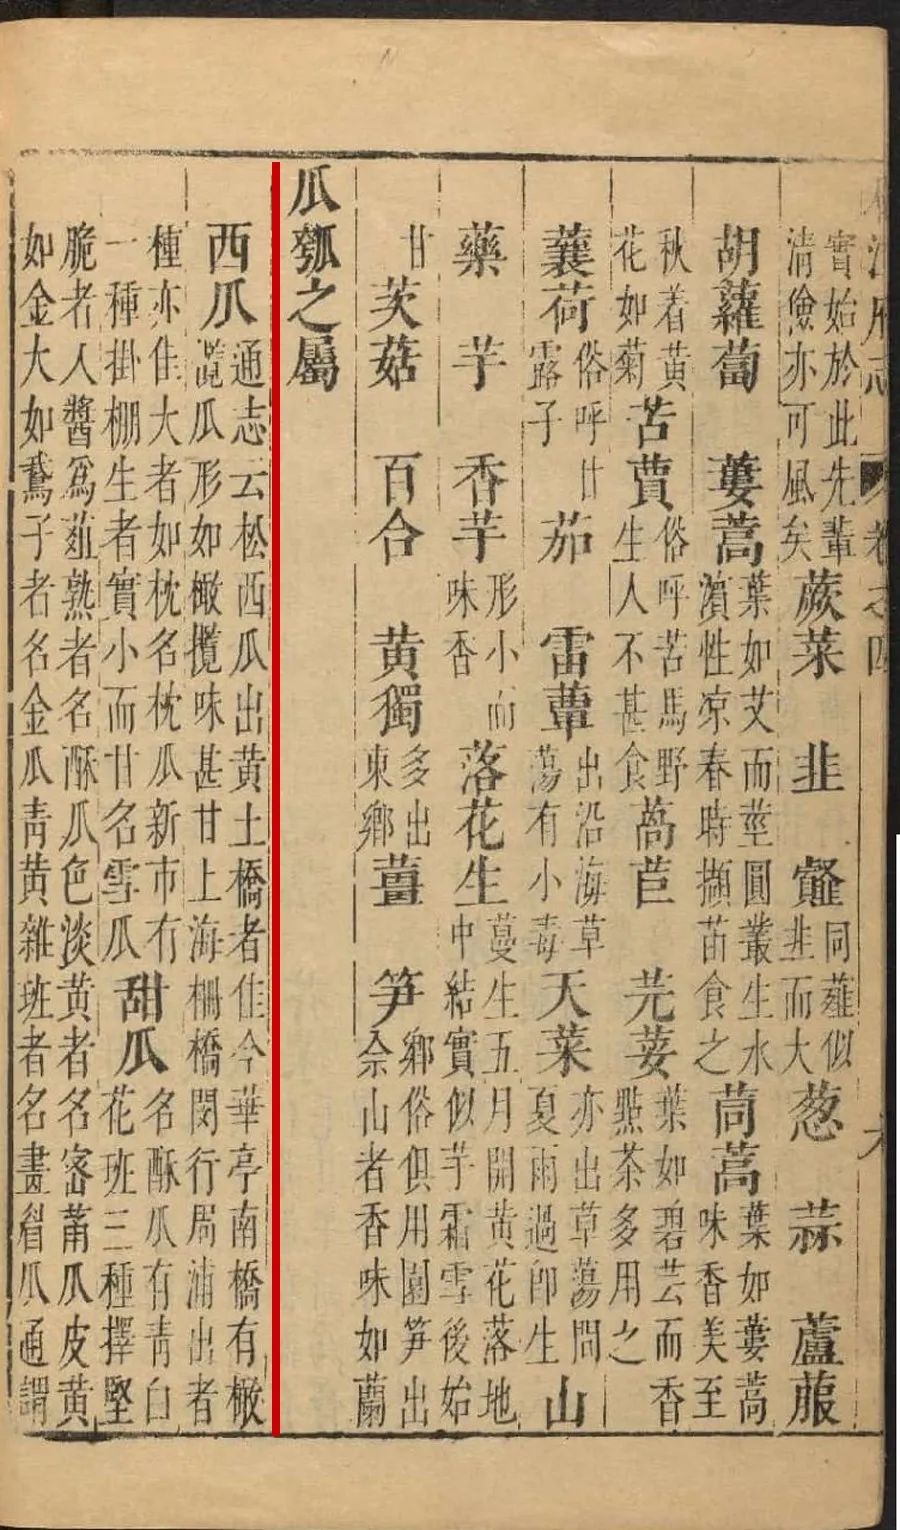 江府志 卷之四 六
實始於此先輩清儉亦可風矣 蕨菜 韭 韰同薤似韭而大 葱 蒜 蘆菔
胡蘿蔔 蔞蒿葉如艾而莖圓叢生水濵性凉春時擷苗食之 茼蒿葉如蔞蒿味香美至
秋着黄花如菊 苦蕒俗呼苦馬野生人不甚食 萵苣 芫荽葉如碧芸而香㸃茶多用之
蘘荷俗呼甘露子 茄 雷蕈出沿海草蕩有小毒 天菜亦出草蕩間夏雨過即生 山
藥 芋 香芋形小而味香 落花生蔓生五月開黄花落地中結實似芋霜雪後始
甘 茨菇 百合 黄獨多出東鄉 薑 笋鄉俗俱用園笋出佘山者香味如蘭
瓜瓠之屬
西瓜通志云松西瓜出黄土橋者佳今華亭南橋有橄㰖瓜形如橄欖味甚甘上海柵橋閔行周浦出者
種亦佳大者如枕名枕瓜新市有一種掛棚生者實小而甘名雪瓜 甜瓜名酥瓜有青白花班三種擇堅
脆者人醬爲葅熟者名酥瓜色淡黄者名宻莆瓜皮黄如金大如鵞子者名金瓜青黄雜班者名畫眉瓜通謂